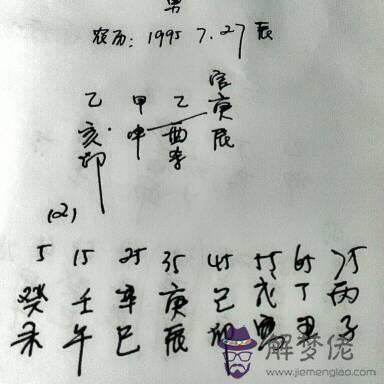 男
农历: 1995 7.27 辰
官
乙 甲 乙 庚
亥 申 酉 辰
卯 辛
(2)
5 15 25 35 45 55 65 75
癸 壬 辛 庚 己 戊 丁 丙
未 午 巳 辰 卯 寅 丑 子
解梦佬
http://www.jiemenglao.com/